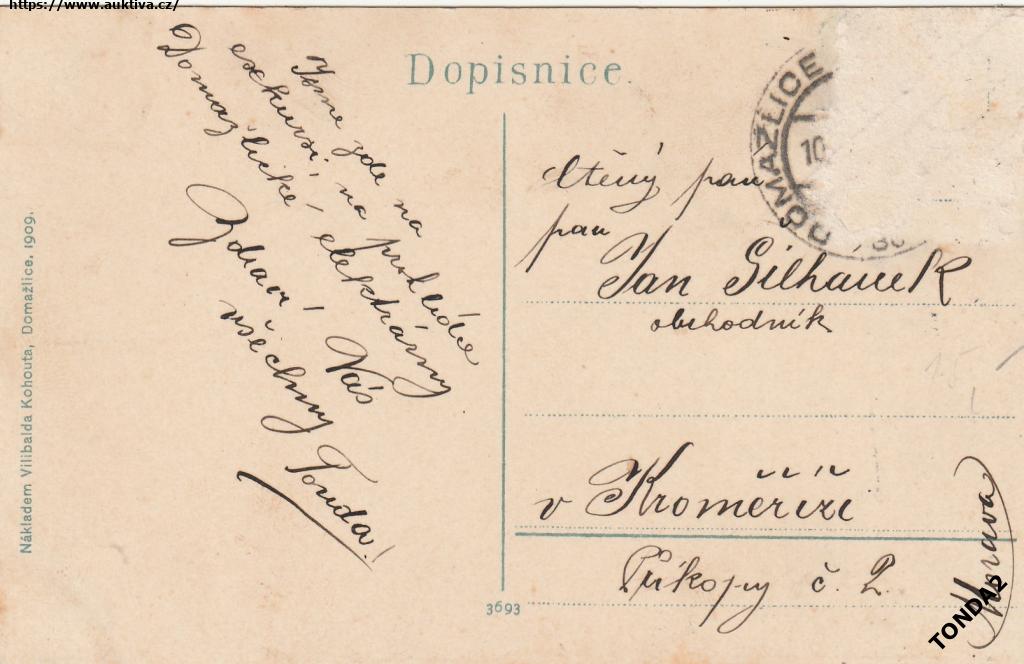 https://www.auktiva.cz/
Dopisnice.
Jsme zde na
exkursi, na prohlídce
Domažlické elektrárny
Zdraví Vás
všechny
Tonda!
DOMAŽLICE
10
Ctěný pan
pan
Jan Silhanek
obchodník
v Kroměříži
Příkopy č. 2.
Morava
Nákladem Vilibalda Kohouta, Domažlice, 1909.
3693
15
TONDA2